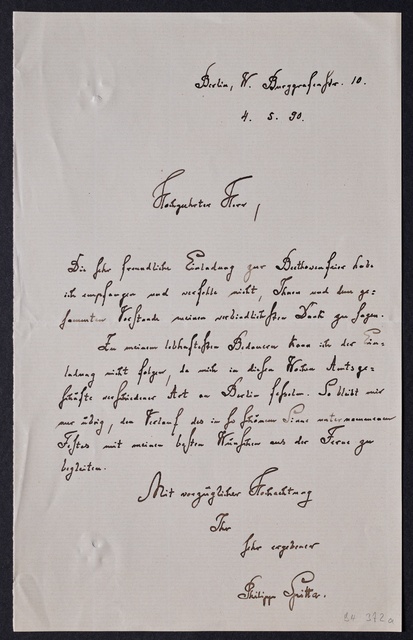 Berlin, W. Burggrafenstr. 10.
4. 5. 90.
Hochgeehrter Herr,
Die sehr freundliche Einladung zur Beethovenfeier habe
ich empfangen und verfehle nicht, Ihnen und dem ge-
sammten Vorstande meinen verbindlichsten Dank zu sagen.
Zu meinem lebhaftesten Bedauern kann ich der Ein-
ladung nicht folgen, da mich in diesen Wochen Amtsge-
schäfte verschiedener Art an Berlin fesseln. So bleibt mir
nur übrig, den Verlauf des in so schönem Sinne unternommenen
Festes mit meinen besten Wünschen aus der Ferne zu
begleiten.
Mit vorzüglicher Hochachtung
Ihr
sehr ergebener
Philipp Spitta.